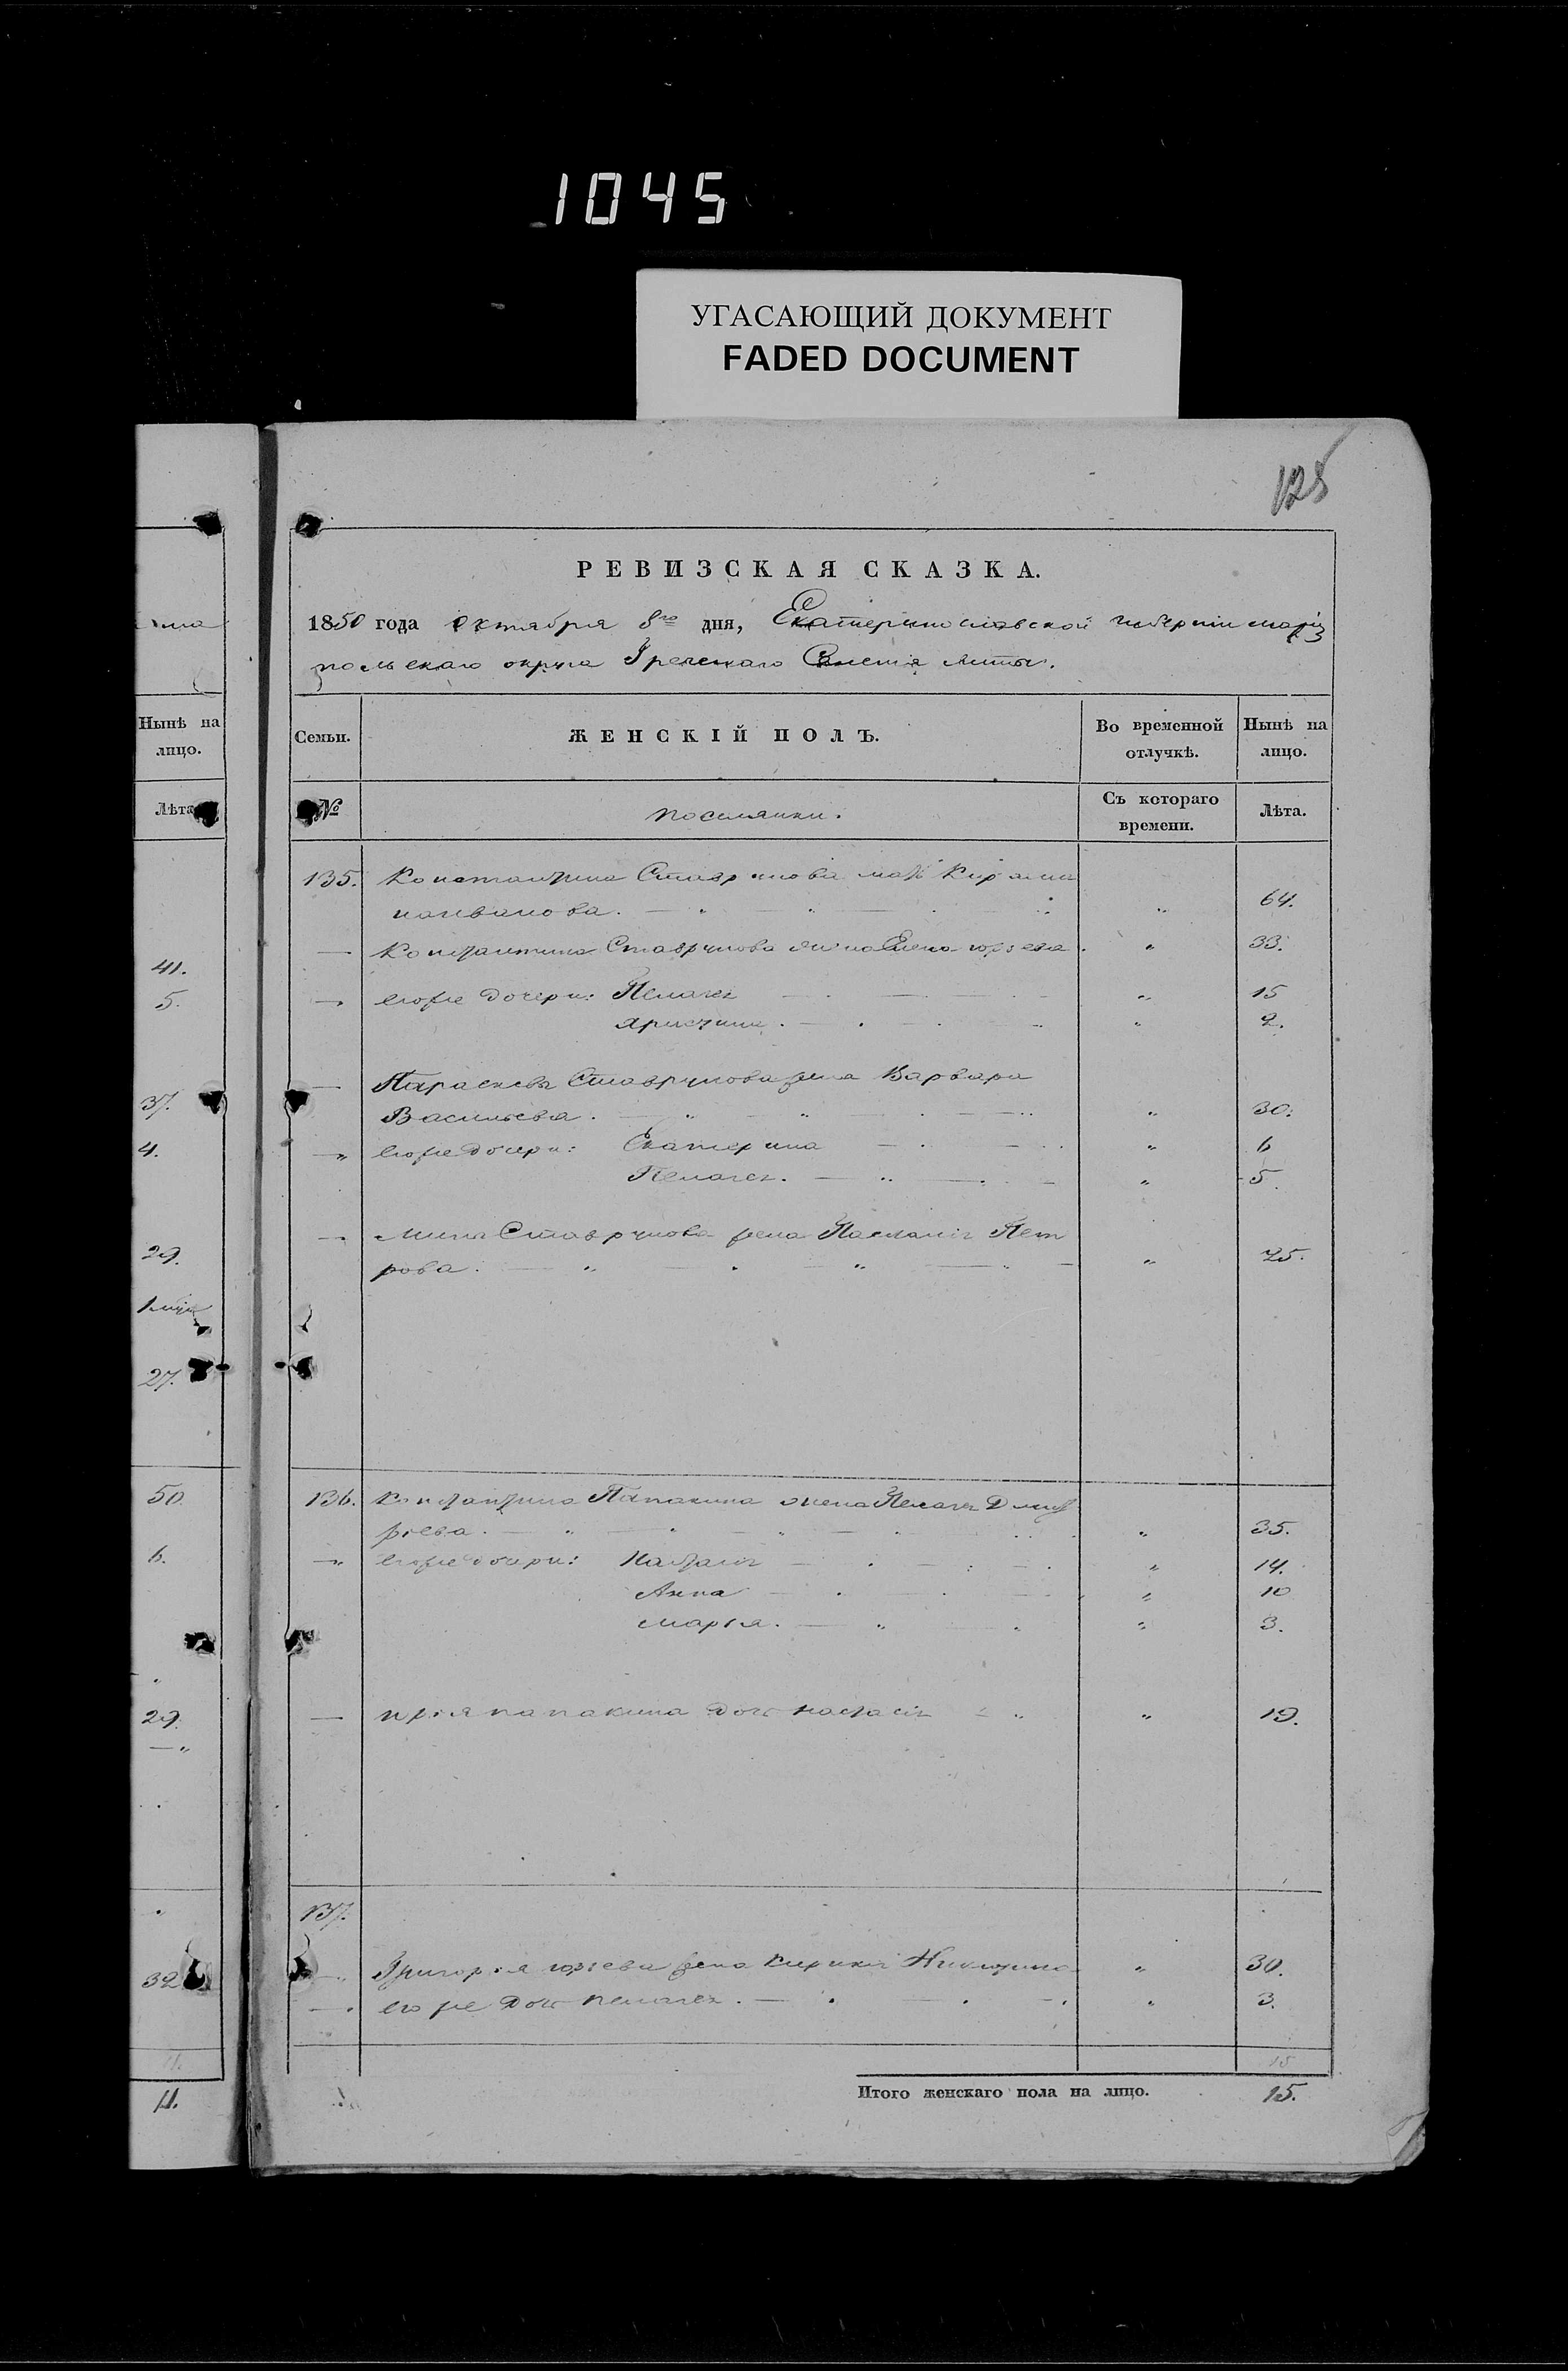 1045
УГАСАЮЩИЙ ДОКУМЕНТ
FADED DOCUMENT
125
РЕВИЗСКАЯ СКАЗКА.
1850 года октября 8го дня, Екатеринославской губернии мариу
польскаго округа Греческаго Селенія Ялты.
Нынѣ на лицо.
Лѣта
41.
5.
37.
4.
29.
27.
50.
6.
29.
32
11.
11.
Семьи. ЖЕНСКІЙ ПОЛЪ. Во временной отлучкѣ. Нынѣ на лицо.
№ поселянки. Съ котораго времени. Лѣта.
135. Константина Ставринова мать
64.
— Константина Ставринова жена Елена юрьева. " 33.
— его же дочери: Пелагея " 15
" 2.
— Параскева Ставринова жена Варвара
Васильева. " 30.
— его же дочери: Екатерина " 6
Пелагея. " 5.
— Ставринова жена Пет
рова. " 25.
136. Константина Папакина жена Пелагея Дмит
ріева. " 35.
— его же дочери: " 14.
Анна " 10
марія. " 3.
— папакина дочь " 19.
137.
— Григорія юрьева жена " 30.
— его же дочь пелагея. " 3.
15
Итого женскаго пола на лицо. 15.